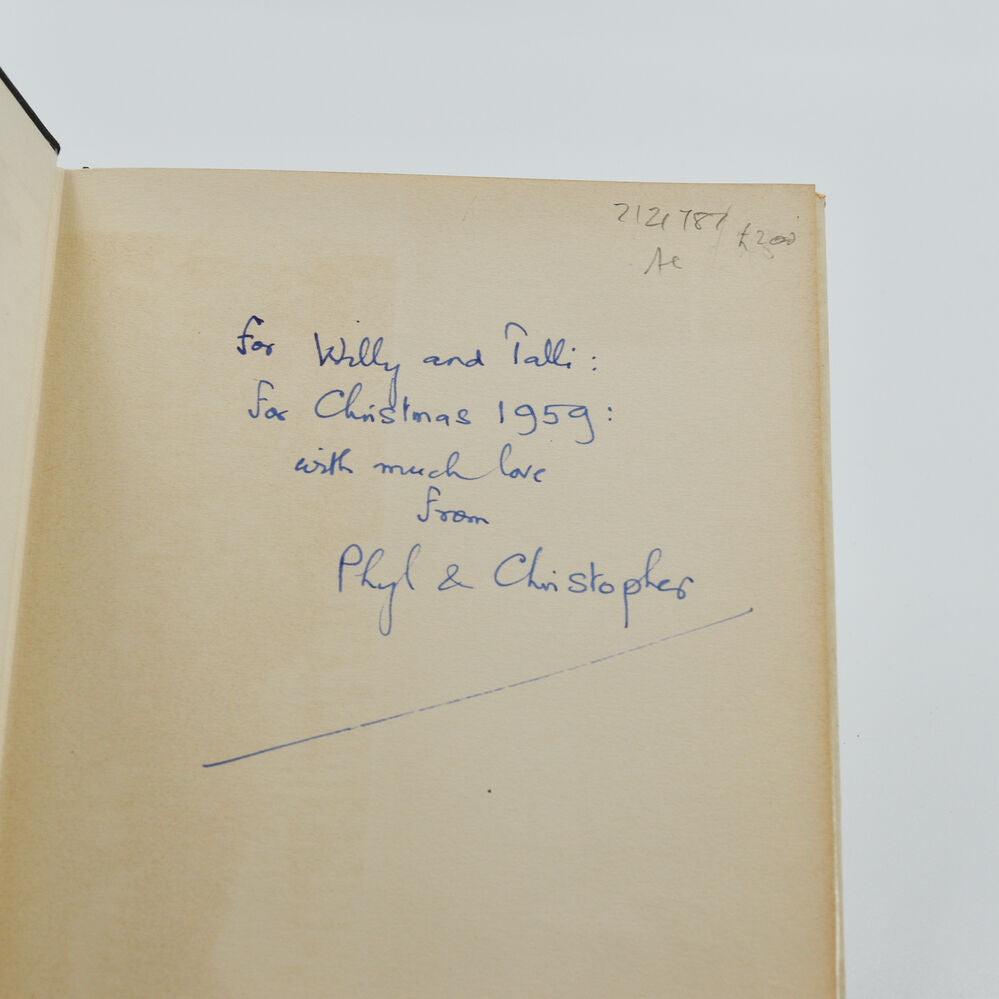 £200
for Willy and Talli:
for Christmas 1959:
with much love
from
Phyl & Christopher